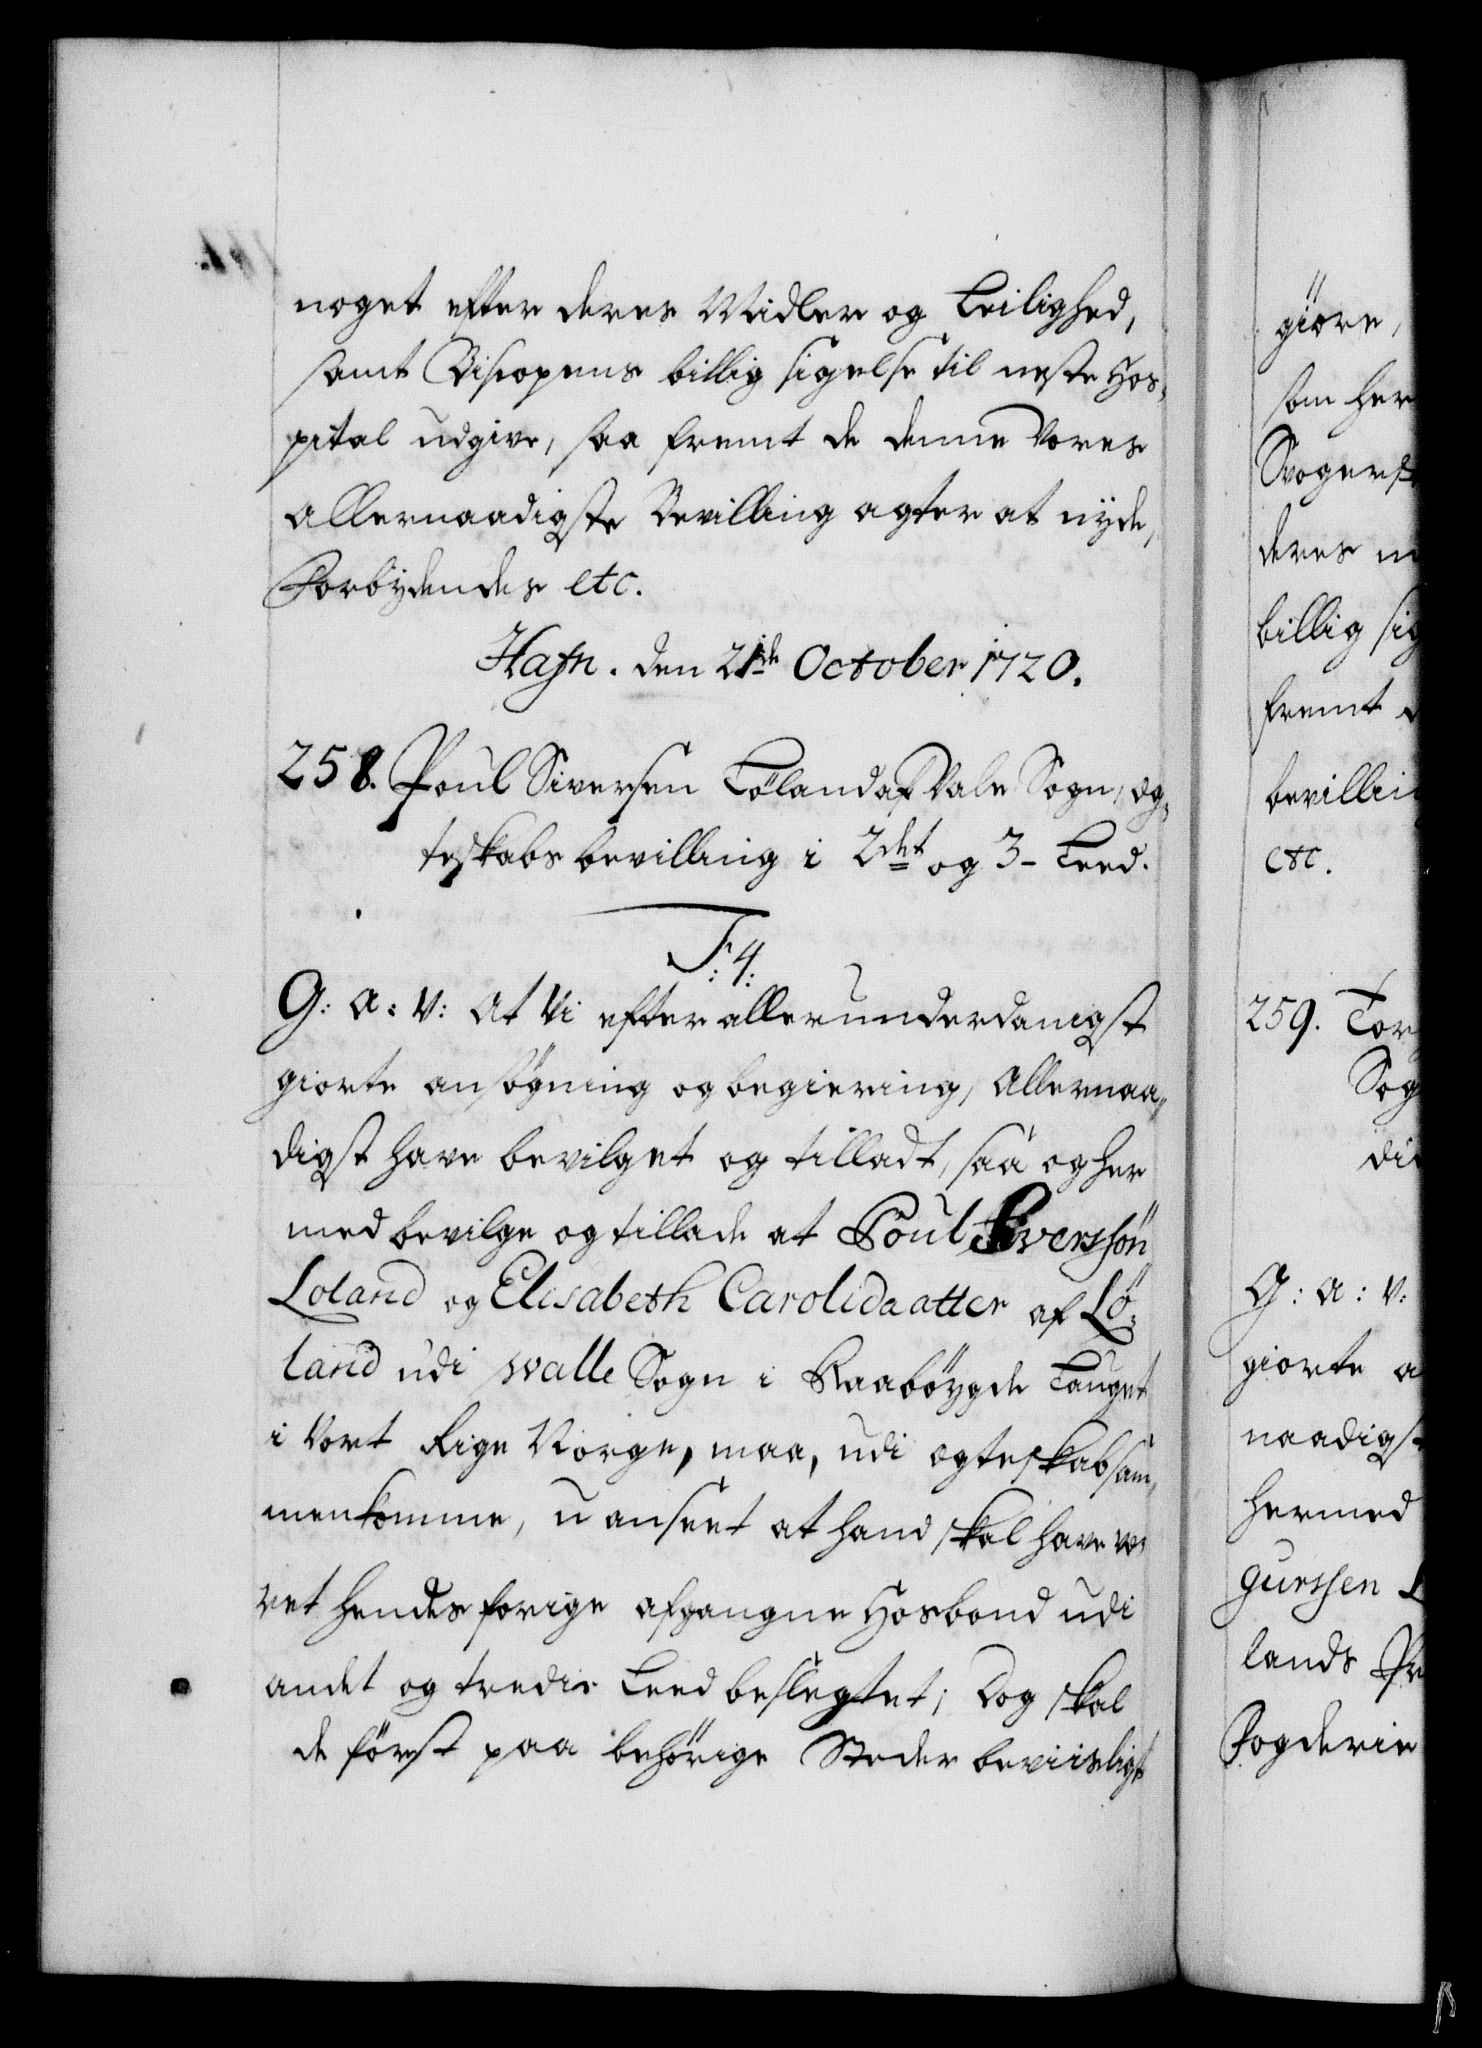 noget efter deres Midler og Leilighed,
samt Biscopens billig sigelse til neste Hos-
pital udgive, saa fremt de denne Vores
allernaadigste Bevilling agter at nyde,
Forbydendes etc.
Hafn. den 21de October 1720.
258. Poul Siversen Löland af Vale Sogn, Eg-
teskabs bevilling i 2det og 3- Leed.
F: 4:
G: a: V: At Vi efter allerunderdanigst
giorte ansögning og begiering, Allernaa-
digst have bevilget og tilladt, saa og her
med bevilge og tillade at Poul Siverssön
Loland og Elisabeth Carolidaatter af Lö-
land udi Walle Sogn i Raaböygde Lauget
i Vort Rige Norge, maa, udi egteskab sam-
menkomme, u anseet at hand skal have væ-
ret hendes forige afgangne Hosbond udi
andet og tredie Leed beslegtet; Dog skal
de först paa behörige Steder beviisligt
giöre,
som her
Svogersk
deres m
billig sig
fremt d
bevillin
etc.
259. Tor
Sog
die
G: a: V:
giorte a
naadigst
hermed
gurssen L
lands Pr
Fogderie